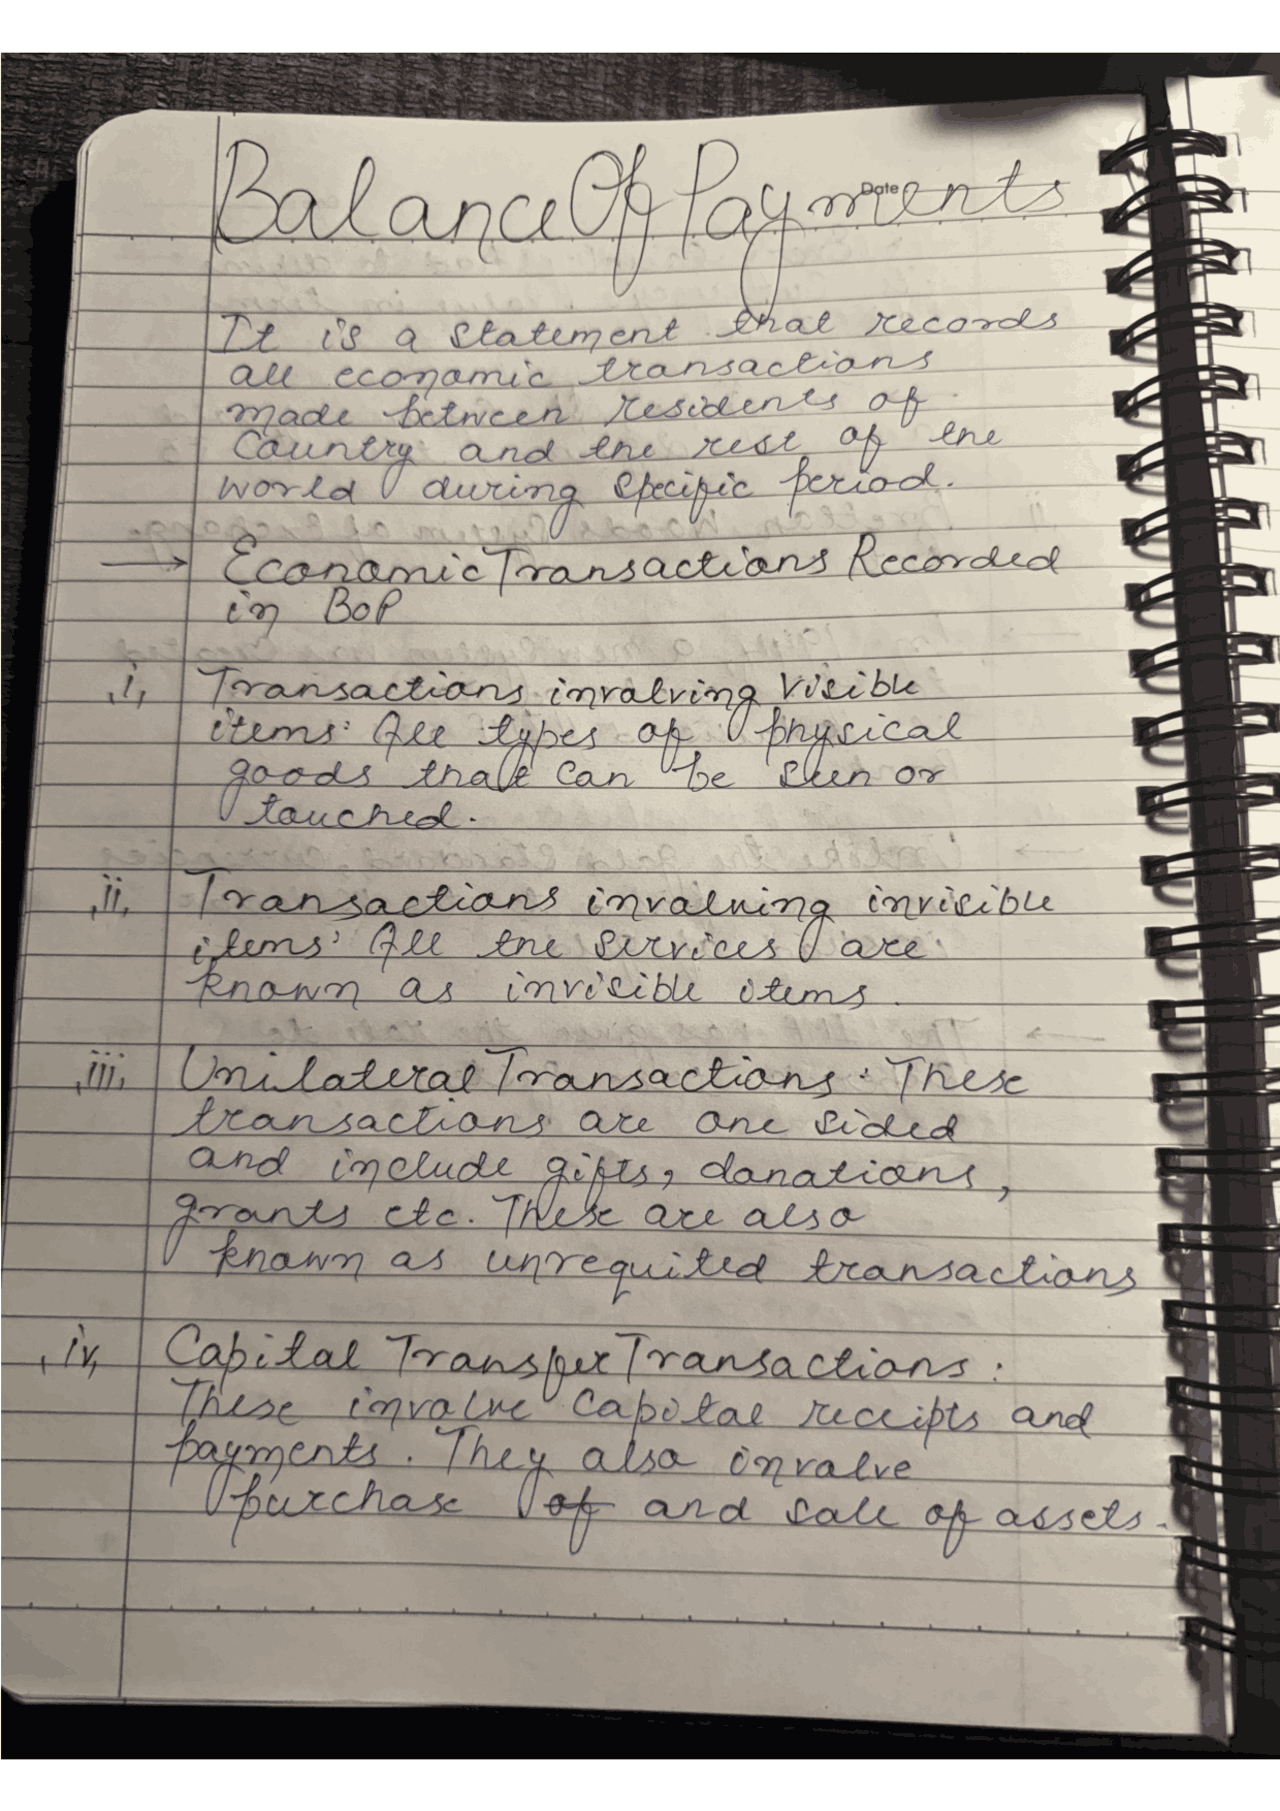 Balance Of Payments
Date
It is a statement that records
all economic transactions
made between residents of
Country and the rest of the
world during specific period.
→ Economic Transactions Recorded
in BoP
,i, Transactions involving visible
items: All types of physical
goods that can be seen or
touched.
,ii, Transactions involving invisible
items: All the services are
known as invisible items.
,iii, Unilateral Transactions: These
transactions are one sided
and include gifts, donations,
grants etc. These are also
known as unrequited transactions
,iv, Capital Transfer Transactions:
These involve capital receipts and
payments. They also involve
purchase of and sale of assets.